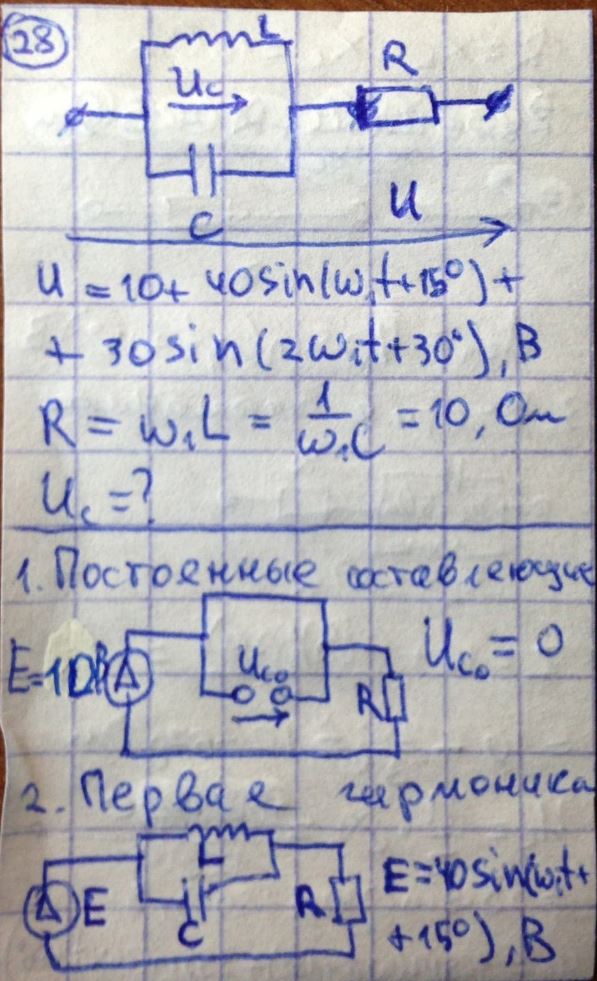 28
L
R
Uc
C
U
U = 10 + 40 sin(ω₁t + 15°) +
+ 30 sin (2ω₁t + 30°), В
R = ω₁L = 1/ω₁C = 10, Ом
Uc = ?
1. Постоянные составляющие
E=10В
Uc₀
R
Uc₀ = 0
2. Первая гармоника
E
L
C
R
E = 40 sin(ω₁t +
+ 15°), В